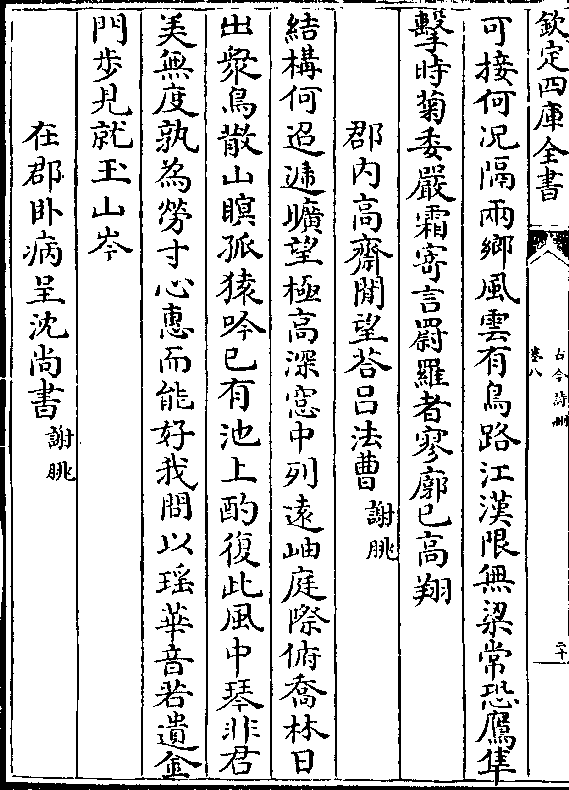 欽定四庫全書
古今詩刪
卷八
二十
可接何况隔兩鄉風雲有鳥路江漢限無梁常恐鷹隼
擊時菊委嚴霜寄言罻羅者寥廓已高翔
郡内高齋閒望荅吕法曹 謝朓
結構何迢遰曠望極高深窻中列遠岫庭際俯喬林日
出衆鳥散山暝孤猿吟已有池上酌復此風中琴非君
美無度孰為勞寸心惠而能好我問以瑶華音若遺金
門步見就玉山岑
在郡卧病呈沈尚書 謝朓